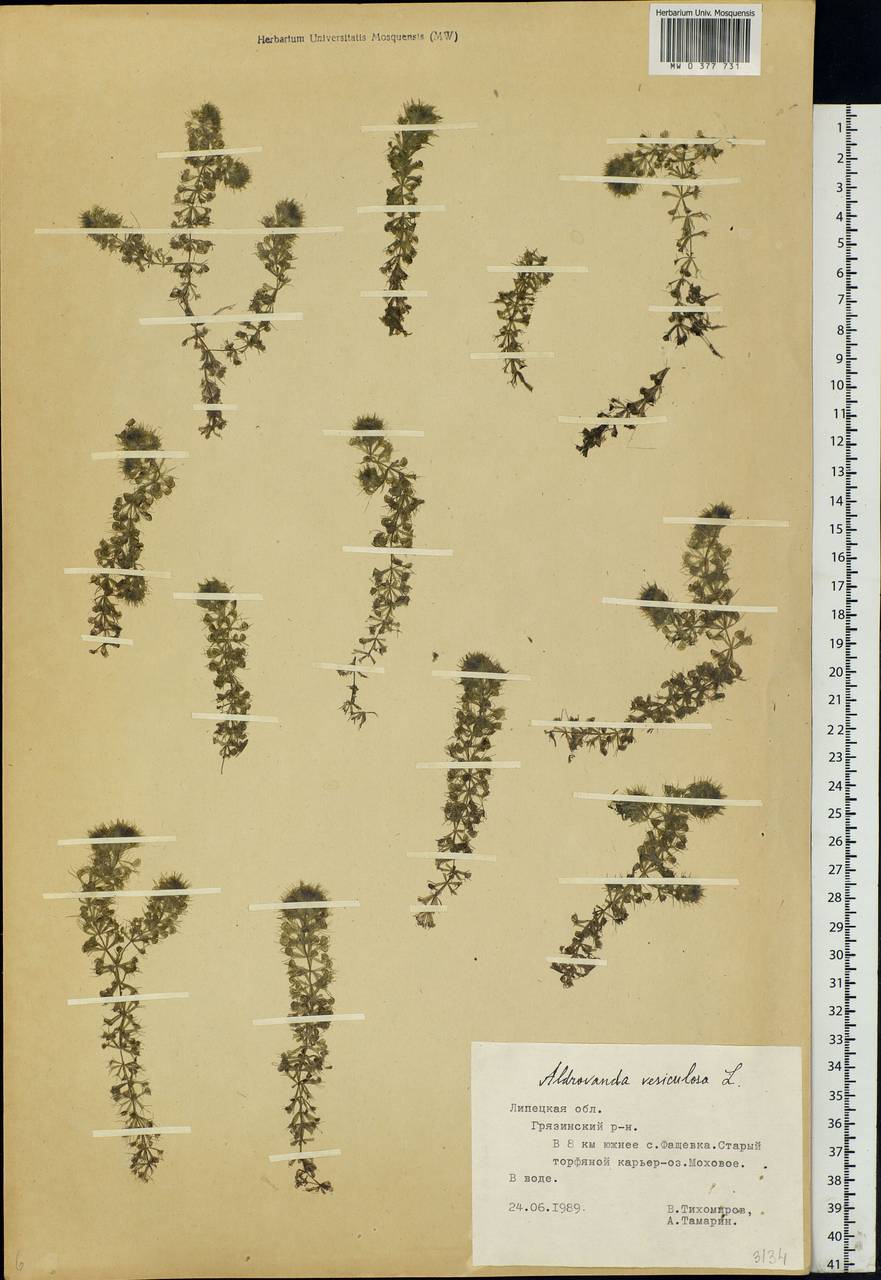 Herbarium Univ. Mosquensis
MW 0 377 731
Herbarium Universitatis Mosquensis (MW)
1
2
3
4
5
6
7
8
9
10
11
12
13
14
15
16
17
18
19
20
21
22
23
24
25
26
27
28
29
30
31
32
33
34
35
36
37
38
39
40
41
Aldrovanda vesiculosa L.
Липецкая обл.
Грязинский р-н.
В 8 км южнее с.Фащевка.Старый
торфяной карьер-оз.Моховое.
В воде.
24.06.1989.
В.Тихомиров,
А.Тамарин.
3134
6